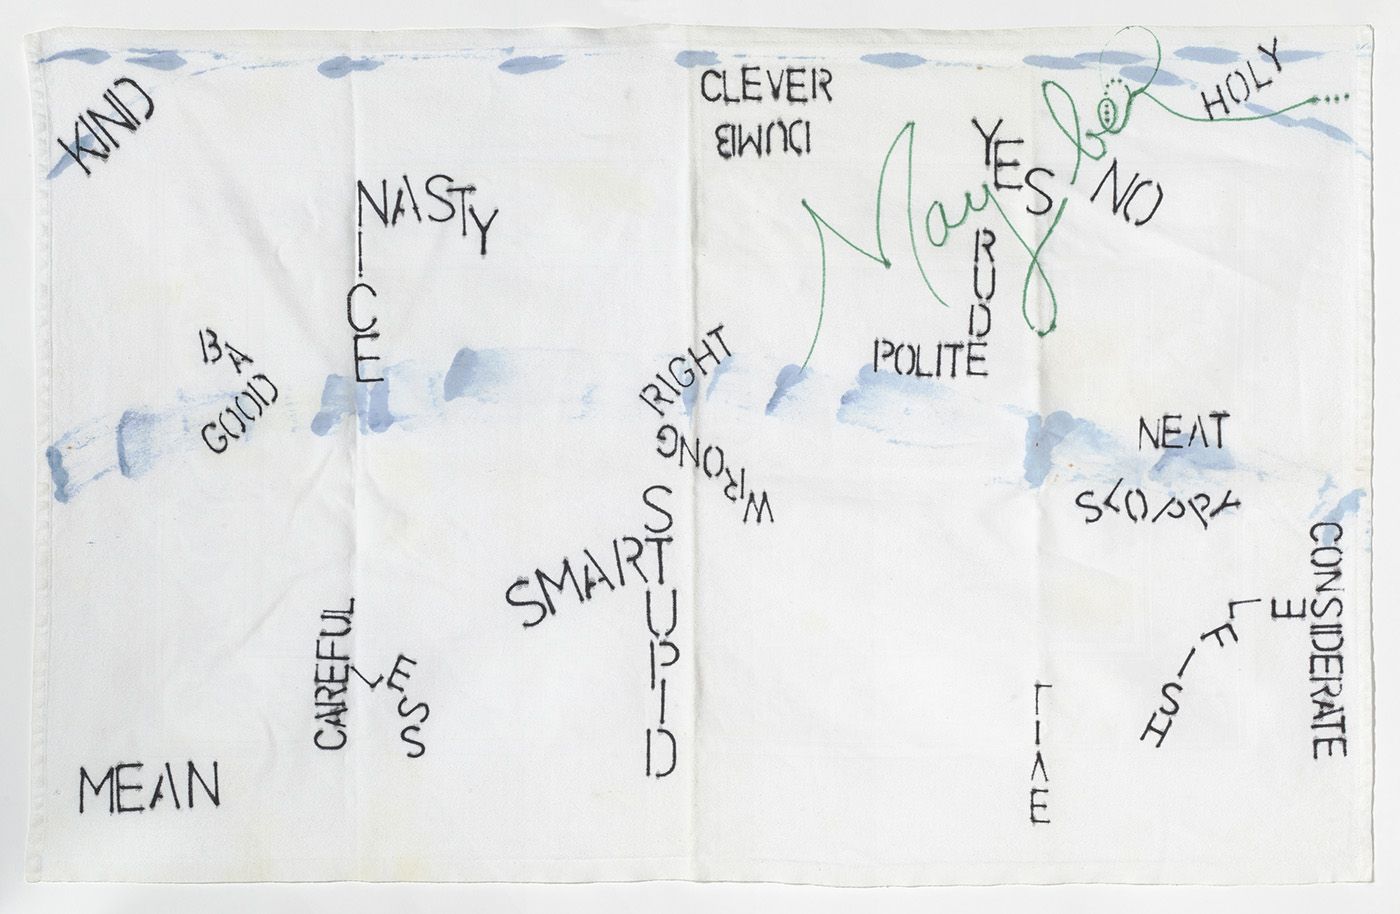 KIND
CLEVER
DUMB
HOLY
YES
NO
Maybe
NASTY
NICE
RUDE
POLITE
BA
GOOD
RIGHT
WRONG
NEAT
SLOPPY
STUPID
SMART
CONSIDERATE
ELFISH
CAREFUL
LESS
LIVE
MEAN